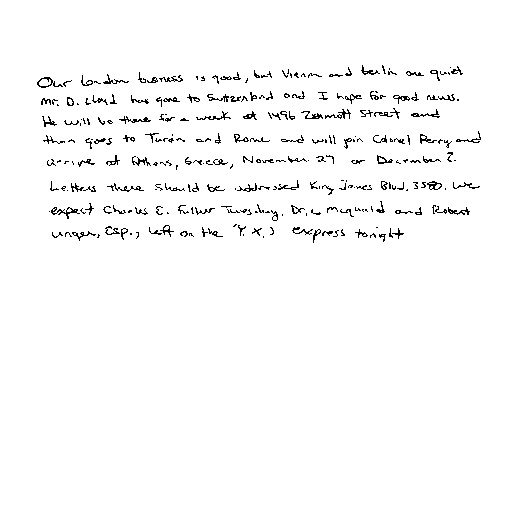 Our London business is good, but Vienna and Berlin are quiet
Mr. D. Lloyd has gone to Switzerland and I hope for good news.
He will be there for a week at 1496 Zermott Street and
then goes to Turin and Rome and will join Colonel Perry and
arrive at Athens, Greece, November 27 or December 2.
Letters there should be addressed King James Blvd. 3580. We
expect Charles E. Fuller Tuesday. Dr. L McQuaid and Robert
Unger, Esp., left on the "Y. X.) express tonight